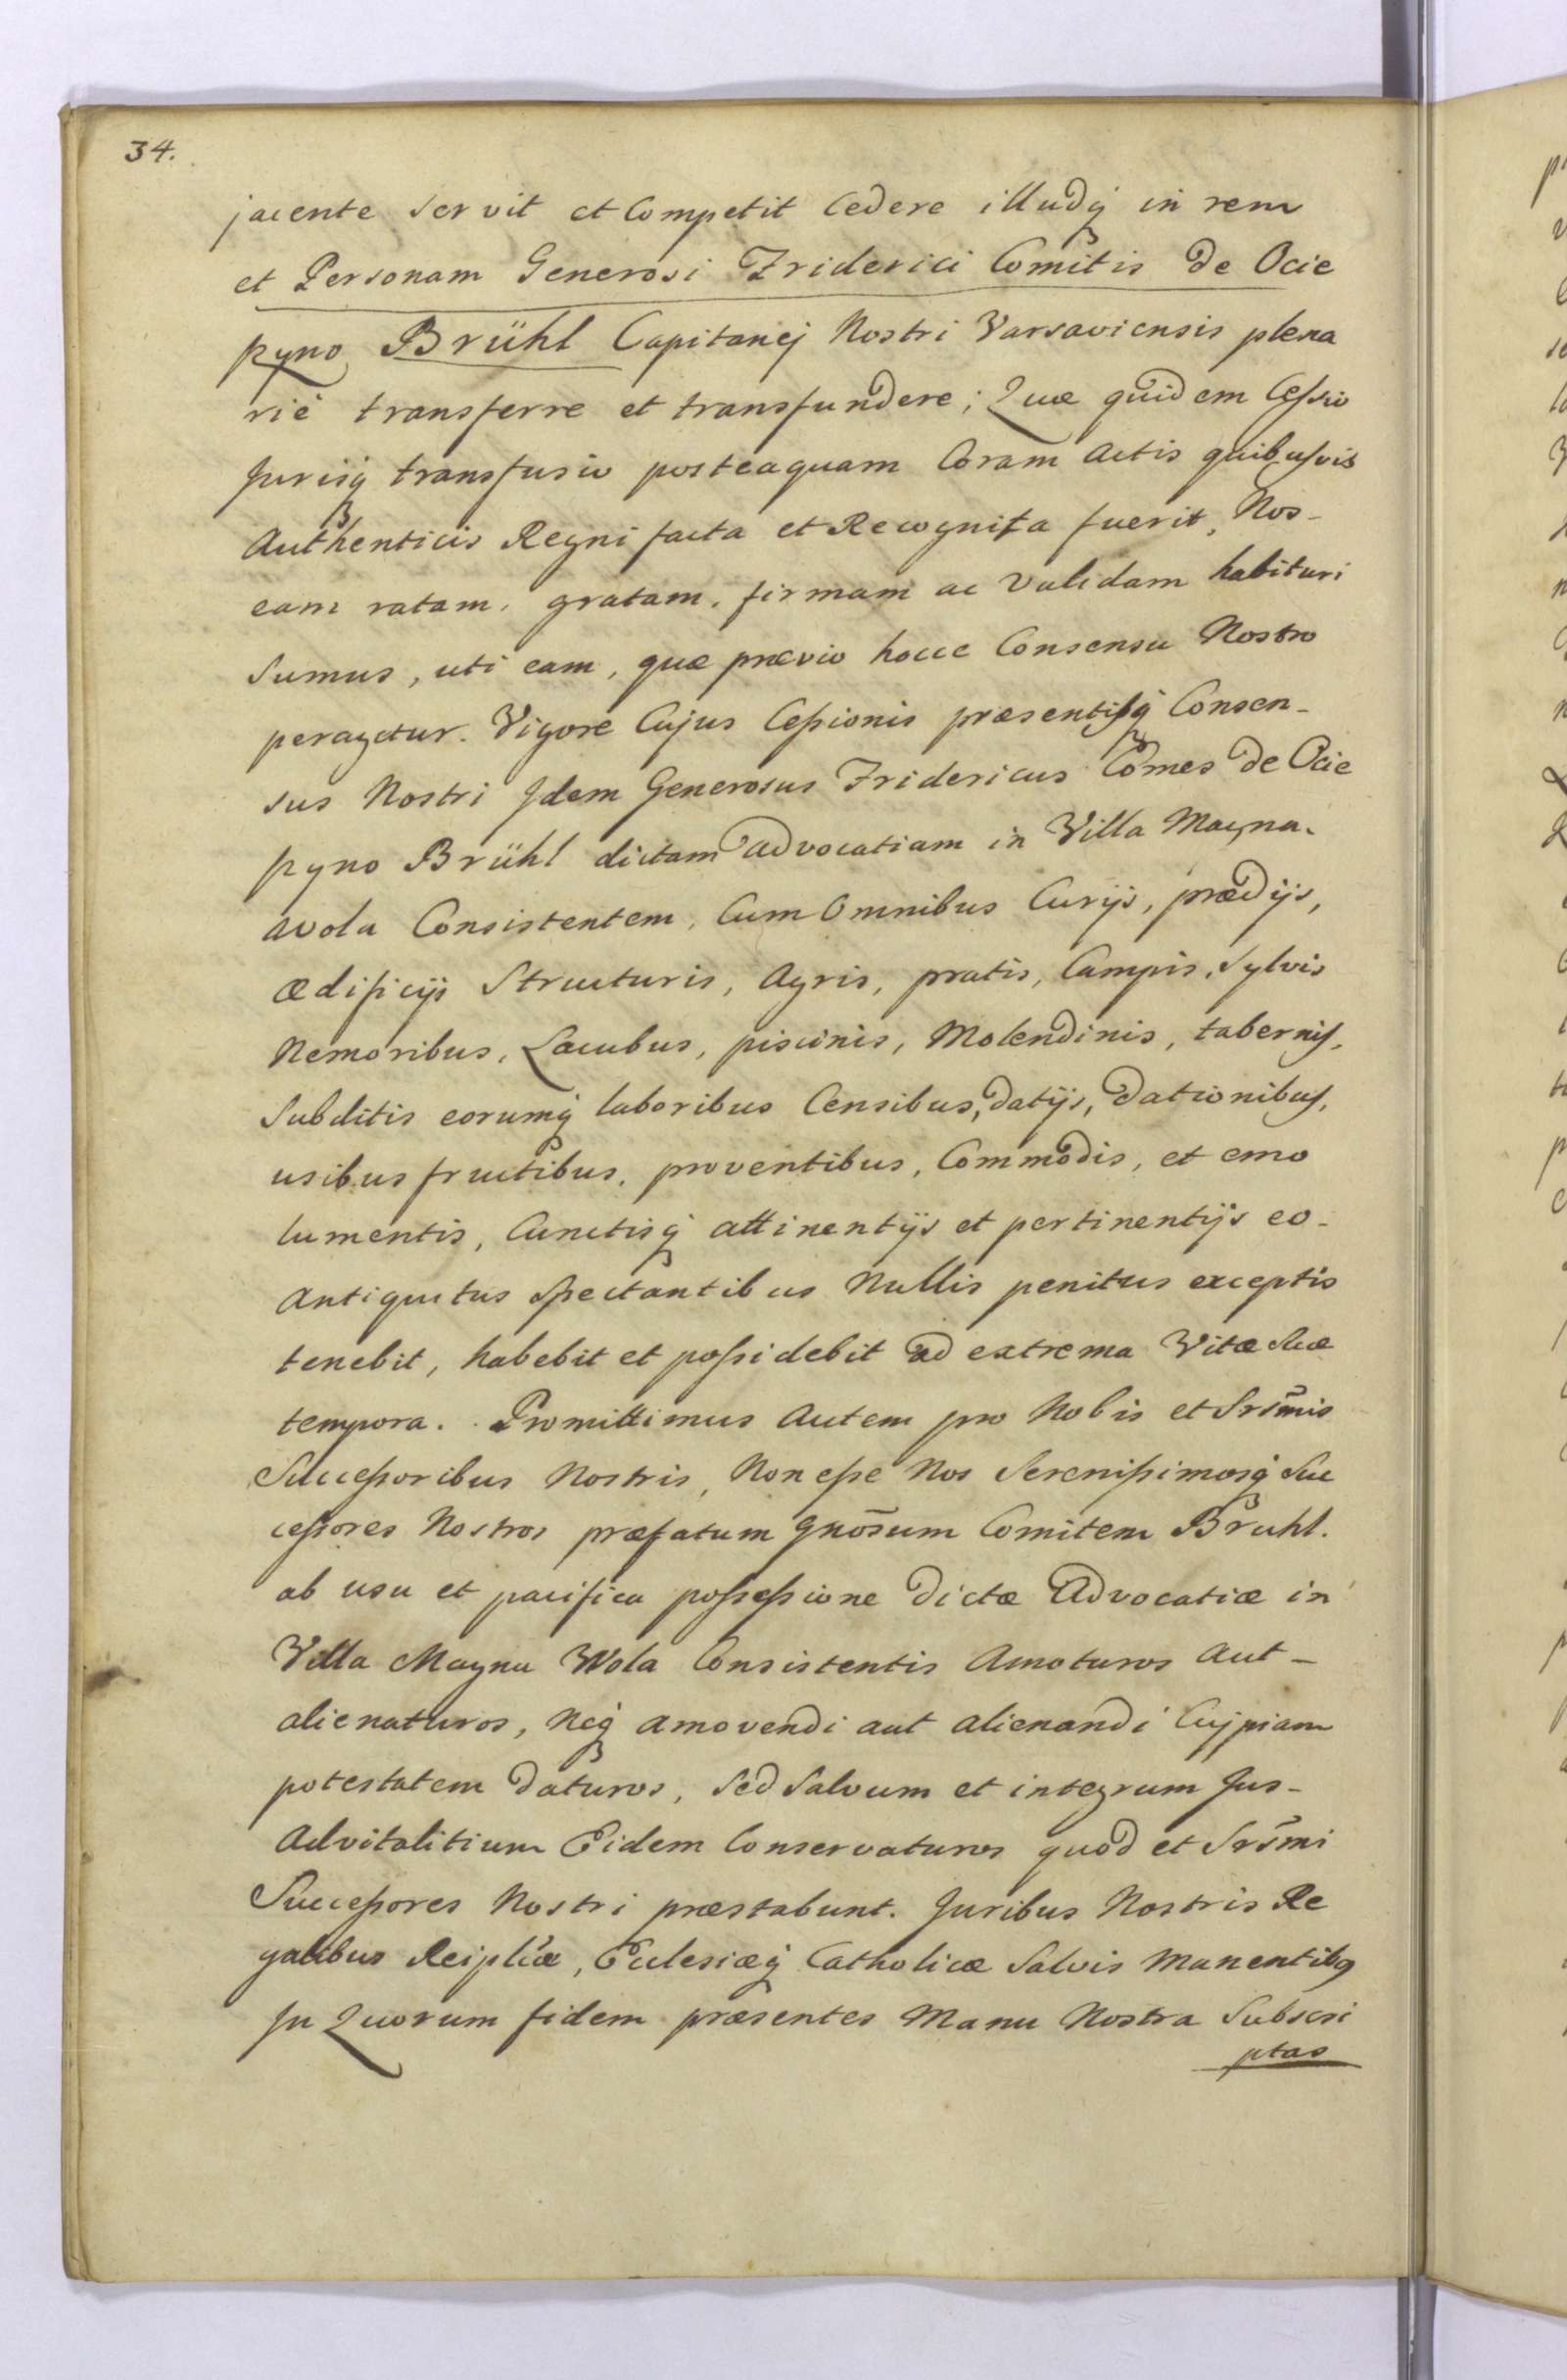 34.
jacente servit et Competit Cedere illudq in rem
et Personam Generosi Friderici Comitis de Ocie
pyno Brühl Capitanej Nostri Varsaviensis plena
riè transferre et transfundere; Quæ quidem Cessio
Jurisq transfusio posteaquam Coram Actis quibusvis
Authenticis Regni facta et Recognita fuerit, Nos-
eam ratam, gratam, firmam ac validam habituri
sumus, uti eam, quæ prævio hocce Consensu Nostro
peragetur. Vigore Cujus Cessionis præsentisq Consen-
sus Nostri Idem Generosus Fridericus Comes de Ocie
pyno Brühl dictam advocatiam in Villa Magna
Wola Consistentem, Cum Omnibus Curijs, prædijs,
ædificijs Structuris, Agris, pratis, Campis, Sylvis
Nemoribus, Lacubus, piscinis, Molendinis, tabernis,
Subditis eorumq laboribus Censibus, datijs, dationibus,
usibus fructibus, proventibus, Commodis, et emo
lumentis, Cunctisq attinentijs et pertinentijs eo-
antiquitus spectantibus Nullis penitus exceptis
tenebit, habebit et possidebit ad extrema Vitæ suæ
tempora. Promittimus Autem pro Nobis et Srs̄mis
Successoribus Nostris, Non esse Nos Serenissimosq Suc
cessores Nostros præfatum Gnōsum Comitem Bruhl.
ab usu et pacifica possessione dictæ Advocatiæ in
Villa Magna Wola Consistentis Amoturos Aut-
alienaturos, Neq amovendi aut alienandi Cujpiam
potestatem daturos, sed salvum et integrum Jus-
Advitalitium Eidem Conservaturos quod et Srs̄mi
Successores Nostri præstabunt. Juribus Nostris Re
galibus Reiplicæ, Ecclesiæq Catholicæ Salvis Manentibq
In Quorum fidem præsentes Manu Nostra Subscri
ptas